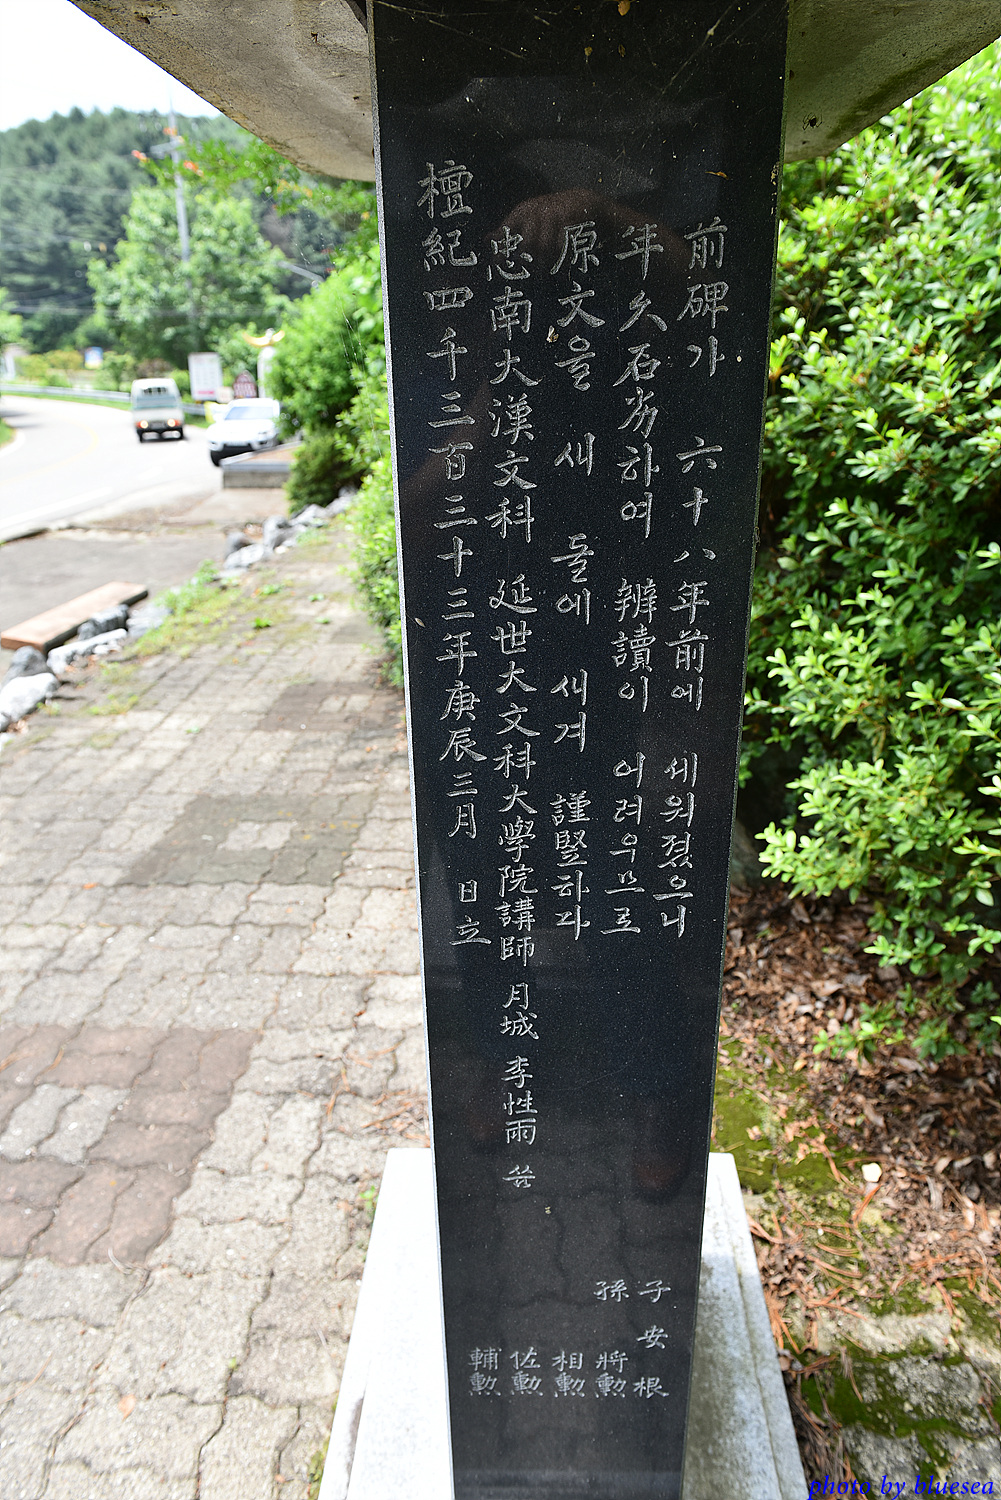 前碑가 六十八年前에 세워졌으니
年久石劣하여 辨讀이 어려우므로
原文을 새 돌에 새겨 謹竪하다
忠南大漢文科 延世大文科大學院講師 月城 李性雨 씀
檀紀四千三百三十三年庚辰三月 日立
子 安根
孫 將勳
相勳
佐勳
輔勳
photo by bluesea